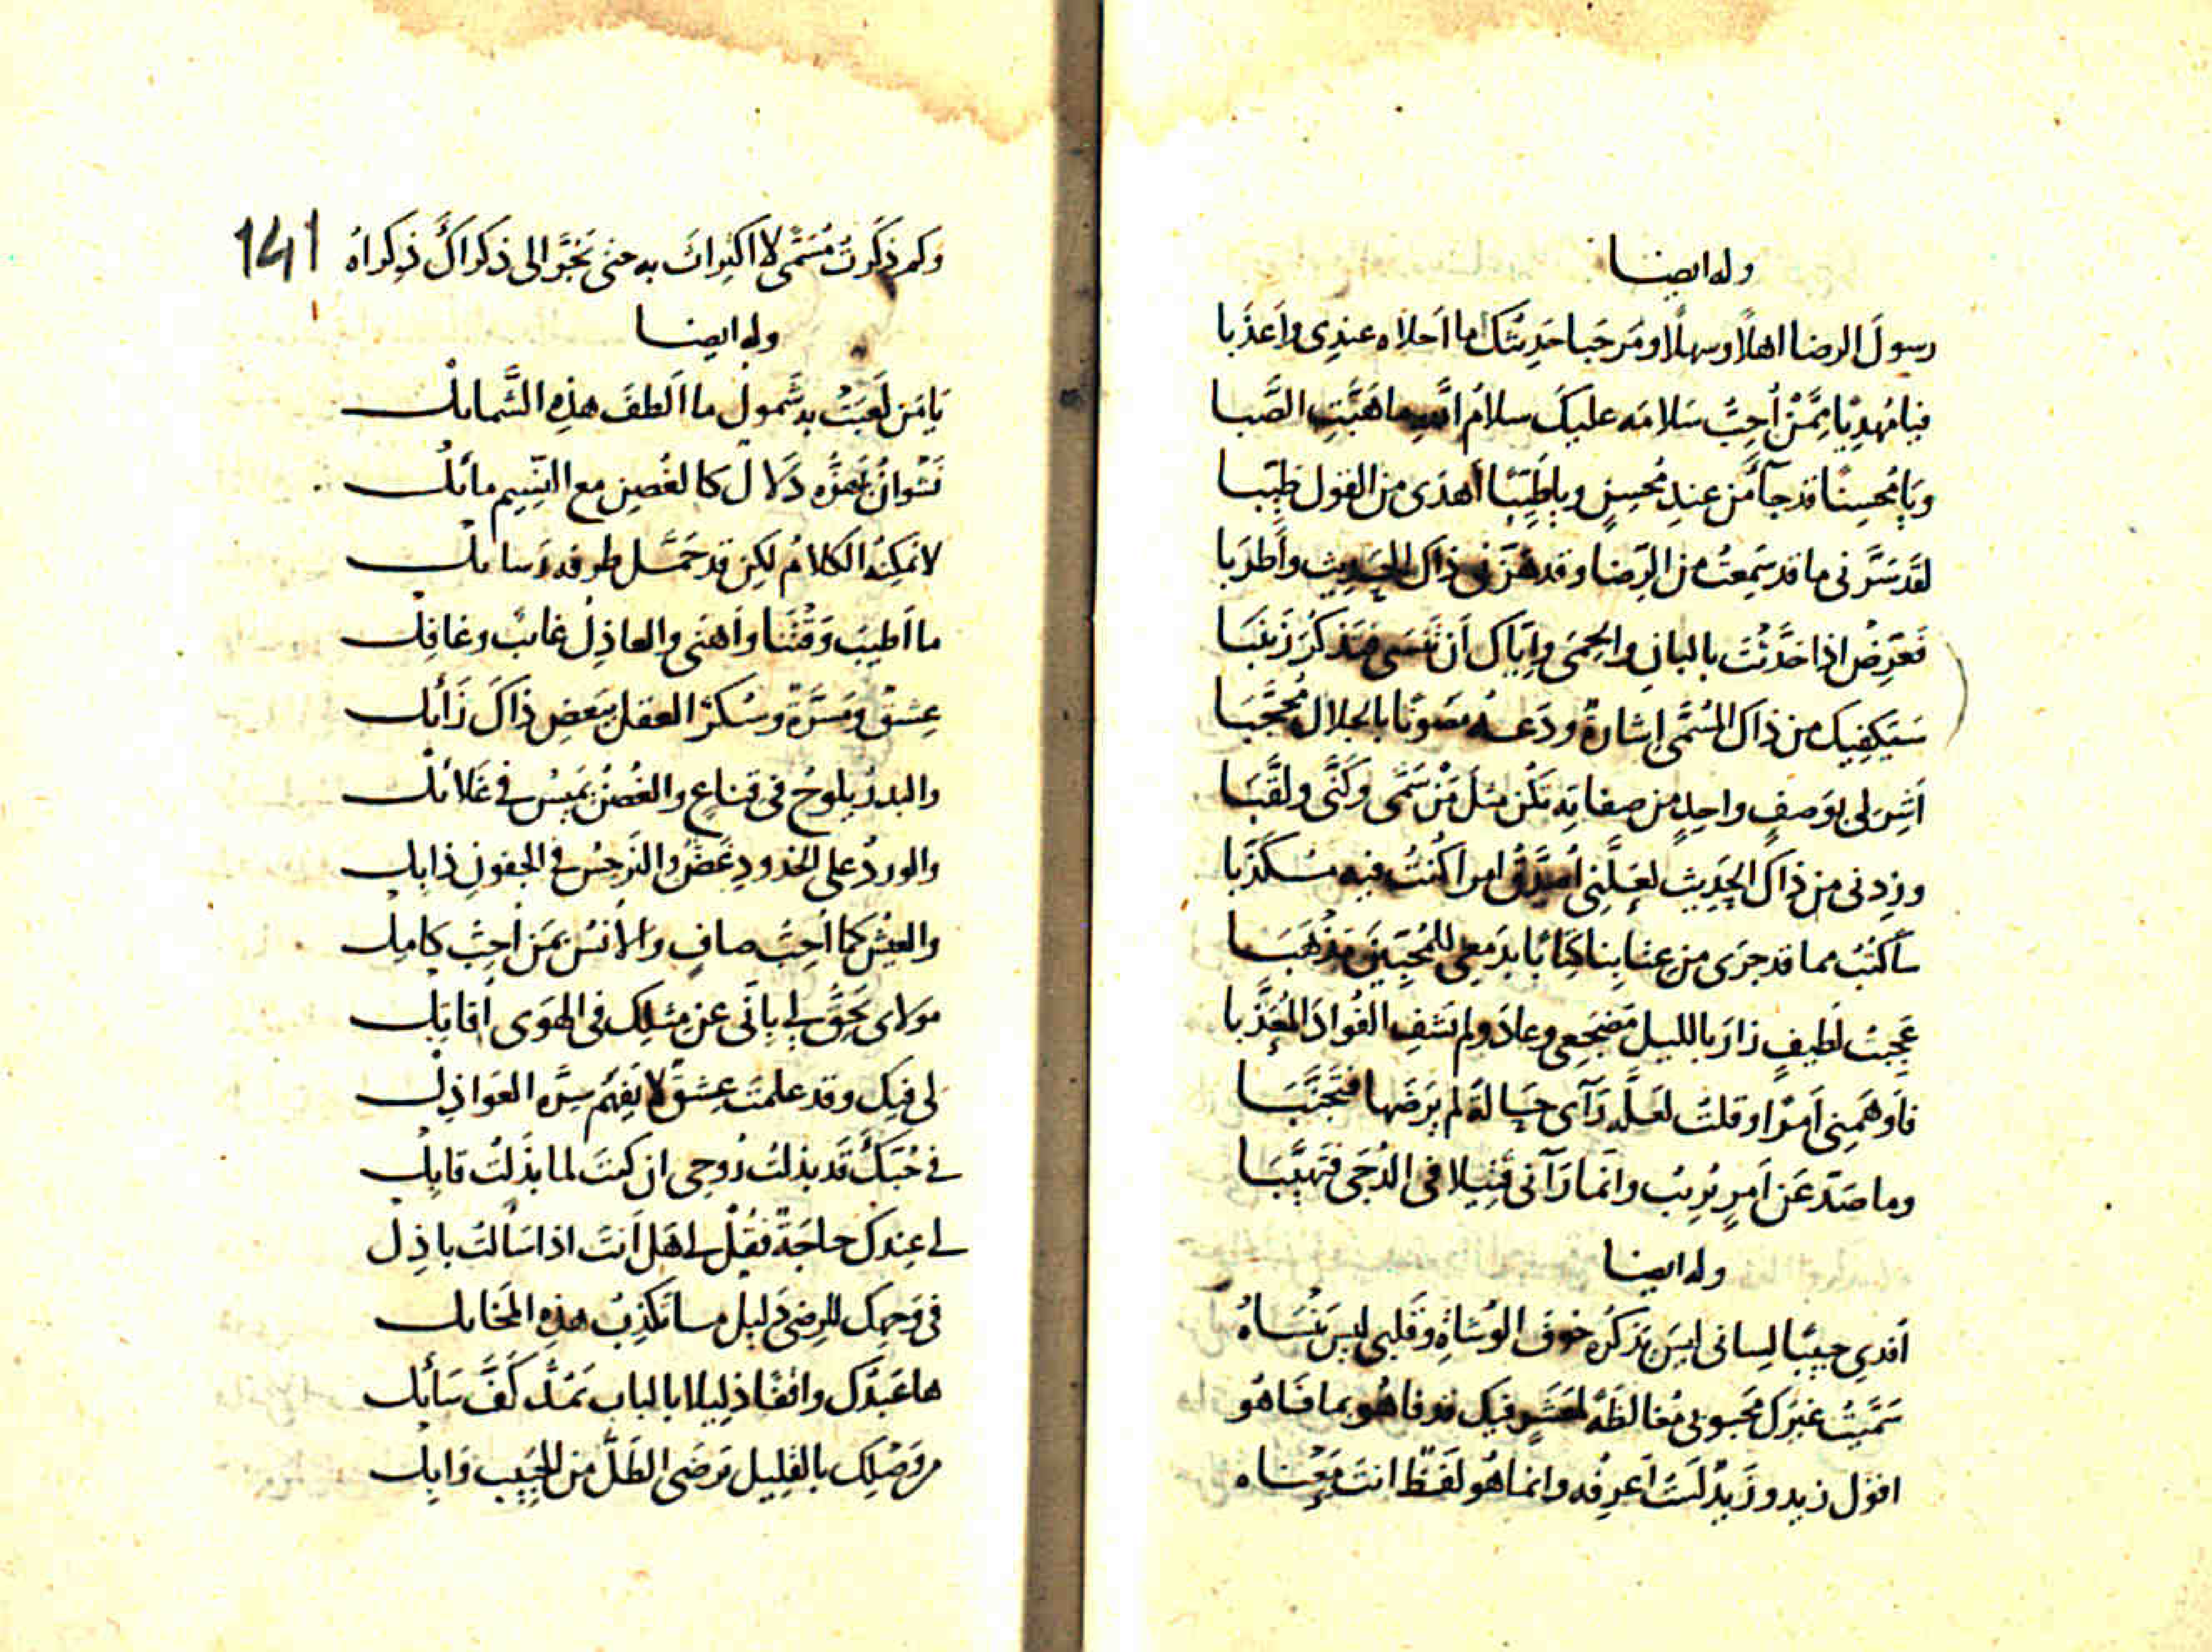 وله ايضا
رسولَ الرضا اهلًا وسهلًا ومَرحَبا حَديثك ما اَحلاه عندِى واَعذَبا
فيا مُهدِيًا مِمَّنْ اُحِبُّ سَلامَه عليكَ سلامُ الله ما هَبَّتِ الصَّبا
ويَا مُحسِنًا قد جآءَ مِن عندِ مُحسِنٍ ويا طَيِّبًا أهدَى من القول طَيِّبا
لقَد سَرَّنى ما قد سَمِعتُ من الرِّضا وقد هَزَّنى ذاك الحَديث واَطرَبا
فَعَرِّضْ اذا حَدَّثْتَ بالبانِ والحِمَى وايَّاك اَن تَنسَى فتَذكُرَ زَينَبَا
سَتَكفِيك من ذاك المُسَمَّى اِشارةٌ ودَعهُ مصَونًا بالجلال مُحَجَّبَا
اَشِر لى بوَصفٍ واحدٍ من صفاتِه تكن مثلَ مَنْ سَمَّى وَكَنَّى ولقَّبَا
وزِدنى من ذاك الحَدِيث لعَلَّنى اُصَدِّقُ امرا كُنتُ فيه مكذَّبا
سأكتبُ مما قد جرَى من عتابِنا كتابًا بدَمعِى للمُحبِّينَ مَذْهَبَا
عَجِبتُ لطيفٍ زارَ بالليل مَضجَعِى وعادَ ولم تشفِ الفُوادَ المُعَذَّبا
فاَوهَمَنِى اَمرًا وقلتُ لعَلَّه رَآى حَالةً لم يَرضَها فتَجَنَّبَا
وما صَدَّ عَن اَمرٍ يُرِيبُ وانما رَآنى قتِيلا فى الدُجَى فتَهيَّبَا
وله ايضا
اَفدِى حبيبًا لِسانى ليسَ يَذكرُه خوفَ الوُشاةِ وقَلبى ليسَ يَنْسَاهُ
سَمَّيتُ غيرَك مَحبوبى مُغالطَةً لمَعشَرٍ فيك قد فاهُو بما فَاهُو
اقول زيد وزَيدٌ لستُ اَعرفُه وانما هُو لَفظٌ انتَ مَعْناه
وكم ذكَرتُ مُسَمًّى لا اكتراث به حتى يَجُرَّ الى ذكراكَ ذكراهُ
141
وله ايضا
يَا مَن لَعِبَتْ به شَمول ما اَلطفَ هذِه الشَّمائل
نَشْوانُ يَهُزُّه دَلال كالغُصنِ مع النَّسِيم مائل
لا يُمكِنُه الكلامُ لكِن قد حَمَّل طرفه رَسائل
ما اَطيَبَ وَقْتَنا واَهنَى والعاذِلُ غائب وغافِل
عِشقٌ ومَسَرَّةٌ وسُكرٌ العقل ببَعضِ ذاكَ زَائل
والبدرُ يلوحُ فى قناعٍ والغُصنُ يَميسُ فى غَلائل
والوردُ على الخدودِ غَضٌّ والنَرجسُ فى الجفونِ ذابِل
والعَيْش كما اُحِبُّ صافٍ والاُنسُ بمَن اُحِبُّ كامِل
مولاى يَحِقُّ لى بانّى عن مثلِك فى الهَوى اُقاتِل
لى فيك وقد علمتَ عِشقٌ لا يَفهَم سِرَّه العَواذِل
فى حُبِّكَ قد بذلتُ رُوحى ان كنتَ لما بذَلتُ قابِل
لى عِندك حاجَةٌ فقُل لى هَل اَنتَ اذا سَألتُ باذِل
فى وَجهِك للرِضى دَليل ما تكذِبُ هذِه المَخائل
ها عَبدُك واقفًا ذليلا بالبابِ يَمُدُّ كَفَّ سَائل
مِن وَصلِك بالقليل يَرضَى الطَلُّ مِن الحَبيبِ وَابِل